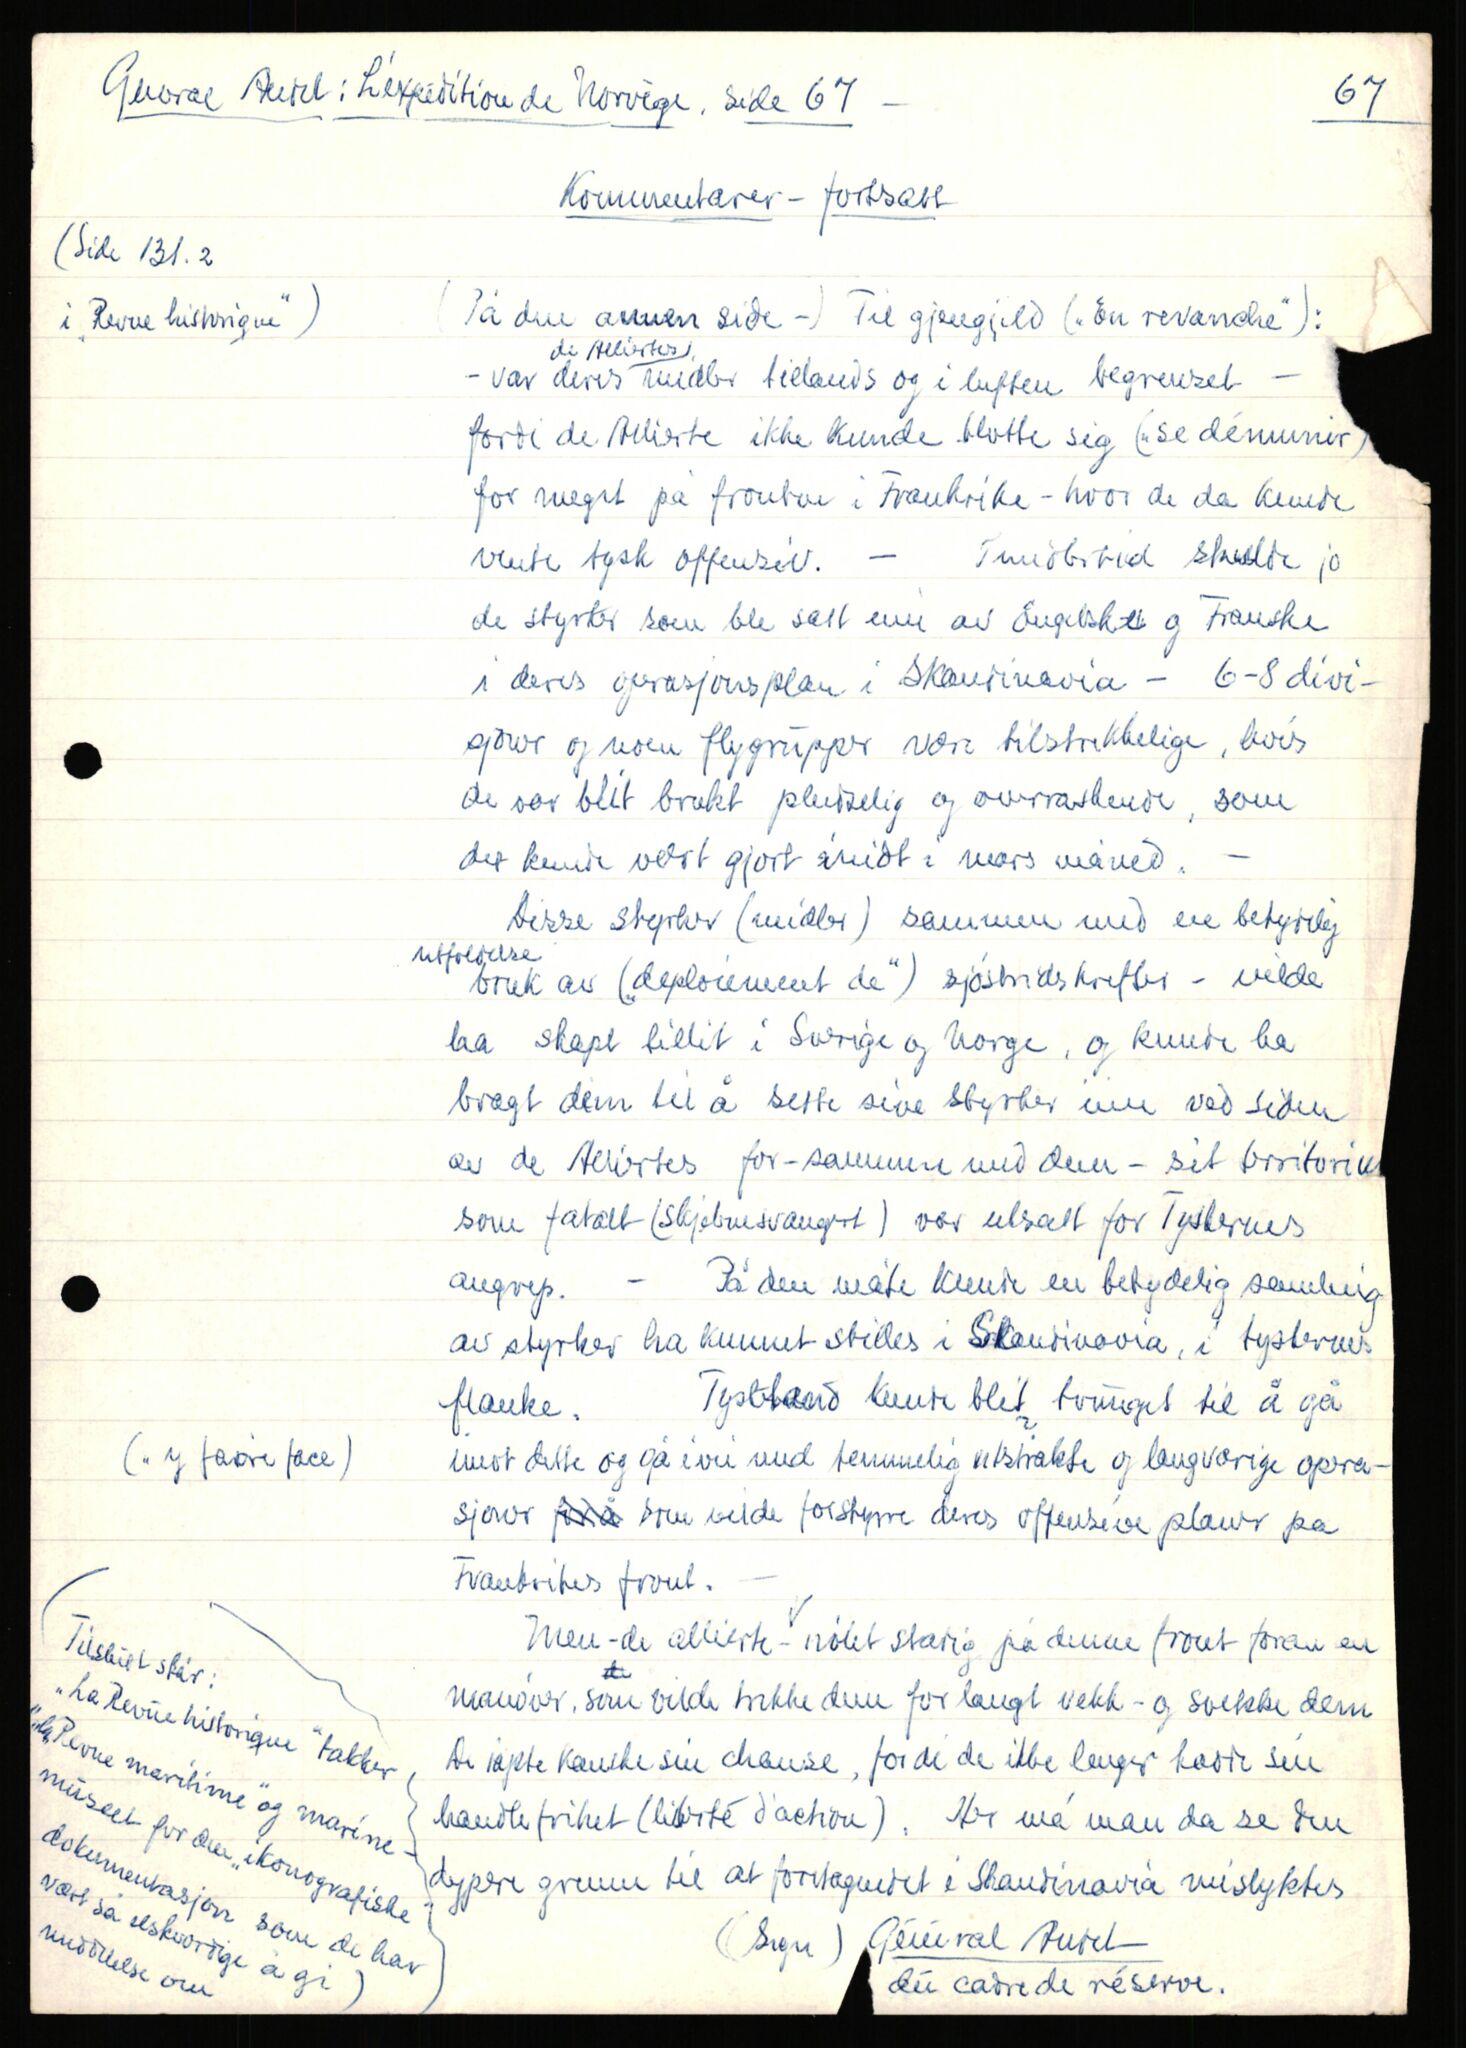 General Audet: L'éxpédition de Norvège. side 67 –
67
Kommentarer – fortsatt
(Side 131.2
i „Revue historique")
(På den annen side –) Til gjengjeld („En revanche"):
de Alliertes
– var deres midler tillands og i luften begrenset –
fordi de Allierte ikke kunde blotte sig („se démunir)
for meget på fronten i Frankrike – hvor de da kunde
vente tysk offensiv. – Imidlertid skulde jo
de styrker som ble satt inn av Engelske og Franske
i deres operasjonsplan i Skandinavia – 6–8 divi-
sjoner og noen flygrupper være tilstrekkelige, hvis
de var blit brukt pludselig og overraskende, som
det kunde vært gjort i midt i mars måned. –
Disse styrker (midler) sammen med en betydelig
utfoldelse
bruk av („deploiement de") sjøstridskrefter – vilde
ha skapt tillit i Sverige og Norge, og kunde ha
bragt dem til å sette sine styrker inn ved siden
av de Alliertes for – sammen med dem – sit territorium
som fatalt (skjebnesvangert) var utsatt for Tyskernes
angrep. – På den måte kunde en betydelig samling
av styrker ha kunnet stilles i Skandinavia, i tyskernes
flanke. Tyskland kunde blit tvunget til å gå
(„y faire face)
imot dette og gå i vei med temmelig utstrakte og langvarige opera-
sjoner for å som vilde forstyrre deres offensive planer på
Frankrikes front. –
Men – de allierte – nølet stadig på denne front foran en
manøver, som vilde trekke dem for langt vekk – og svekke dem
De tapte kanske sin chanse, fordi de ikke lenger hadde sin
handlefrihet (liberté d'action). Her må man da se den
dypere grunn til at foretagendet i Skandinavia mislyktes
(Sign) Géneral Audet
du cadre de réserve.
(Tilslutt står:
„La Revue historique" takker
„la Revue maritime" og marine-
museet for den „ikonografiske"
dokumentasjon som de har
vært så elskverdige å gi
meddelelse om)